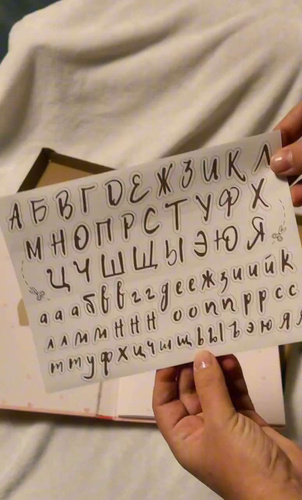 А Б В Г Д Е Ж З И К Л
М Н О П Р С Т У Ф Х
Ц Ч Ш Щ Ы Э Ю Я
а а а б в в г г д е е ж з и и й к
л л м м н н н о о п п р р с с
т т у ф х ц ч ш щ ь ы ъ э ю я